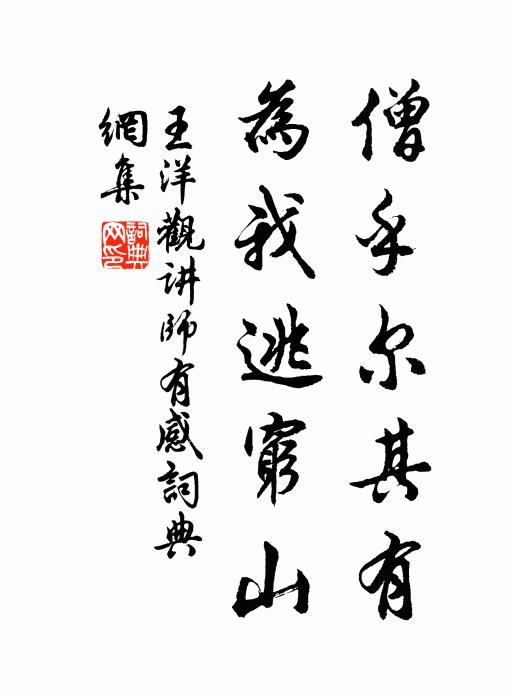 僧乎尔其有
為我逃窮山
王洋觀讲師有感詞典
網集
詞典
网印